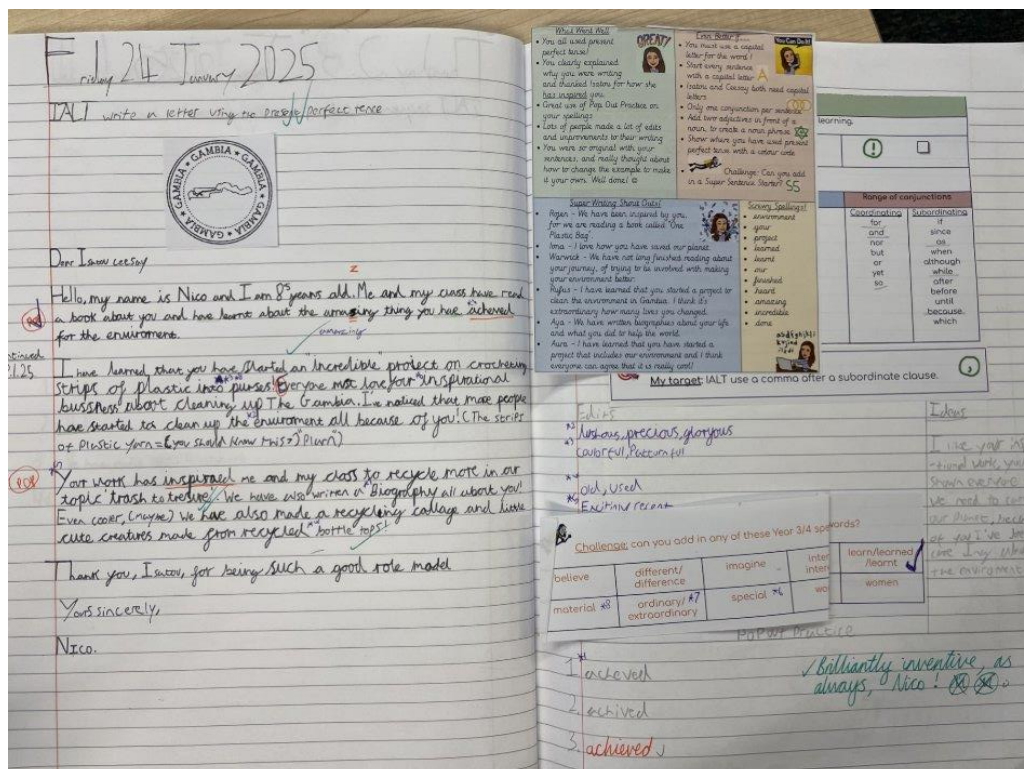 Friday 24 January 2025
IALT write a letter using the present perfect tence
GAMBIA • GAMBIA • GAMBIA • GAMBIA
Dear Isatou Ceesay
Hello, my name is Nico and I am 8 years old. Me and my class have read
a book about you and have learnt about the amazing thing you have acheved
for the enviroment.
amazing
I have learned that you have started an "incredible" protect on crocheting
strips of plastic into purses! Everyone must love your inspirational
business about cleaning up The Gambia. I've noticed that more people
have started to clean up the enviroment all because of you! (The strips
of Plastic yarn = (you should know this?) "Plarn")
Your work has inspiraed me and my class to recycle more in our
topic 'trash to tresure'. We have also written a Biography all about you!
Even cooler, (maybe) we have also made a recycling collage and little
cute creatures made from recycled bottle tops!
Thank you, Isatou, for being such a good role model
Yours sincerely,
Nico.
What Went Well
GREAT!
• You all used present
perfect tense!
• You clearly explained
why you were writing
and thanked Isatou for how she
has inspired you.
• Great use of Pop Out Practice on
your spellings
• Lots of people made a lot of edits
and improvements to their writing
• You were so original with your
sentences, and really thought about
how to change the example to make
it your own. Well done! ☺
Even Better If...
You Can Do It!
• You must use a capital
letter for the word I
• Start every sentence
with a capital letter A
• Isatou and Ceesay both need capital
letters
• Only one conjunction per sentence
• Add two adjectives in front of a
noun, to create a noun phrase
• Show where you have used present
perfect tense with a colour code
• Challenge: Can you add
in a Super Sentence Starter? SS
Super Writing Shout Outs!
• Rojen - We have been inspired by you,
for we are reading a book called 'One
Plastic Bag'
• Iona - I love how you have saved our planet.
• Warwick - We have not long finished reading about
your journey, of trying to be involved with making
your environment better.
• Rufus - I have learned that you started a project to
clean the environment in Gambia. I think it's
extraordinary how many lives you changed.
• Aya - We have written biographies about your life
and what you did to help the world.
• Aura - I have learned that you have started a
project that includes our environment and I think
everyone can agree that it is really cool!
Screwy Spellings!
• environment
• your
• project
• learned
• learnt
• our
• finished
• heard
• amazing
• incredible
• done
learning.
Range of conjunctions
Coordinating Subordinating
for if
and since
nor as
but when
or although
yet while
so after
before
until
because
which
My target: IALT use a comma after a subordinate clause.
Edits
lushous, precious, gloryous
Colorful, Patturnful
old, used
Exciting recent
Ideas
I like your ins
-tional work, you
Shown everyone
we need to
our planet, beca
of you I've
the enviroment
Challenge: can you add in any of these Year 3/4 words?
believe
different/
difference
imagine
learn/learned
/learnt
material *8
ordinary/ *7
extraordinary
special *6
women
Pop out Practice
1. acheved
2. achived
3. achieved
Brilliantly inventive, as
always, Nico!